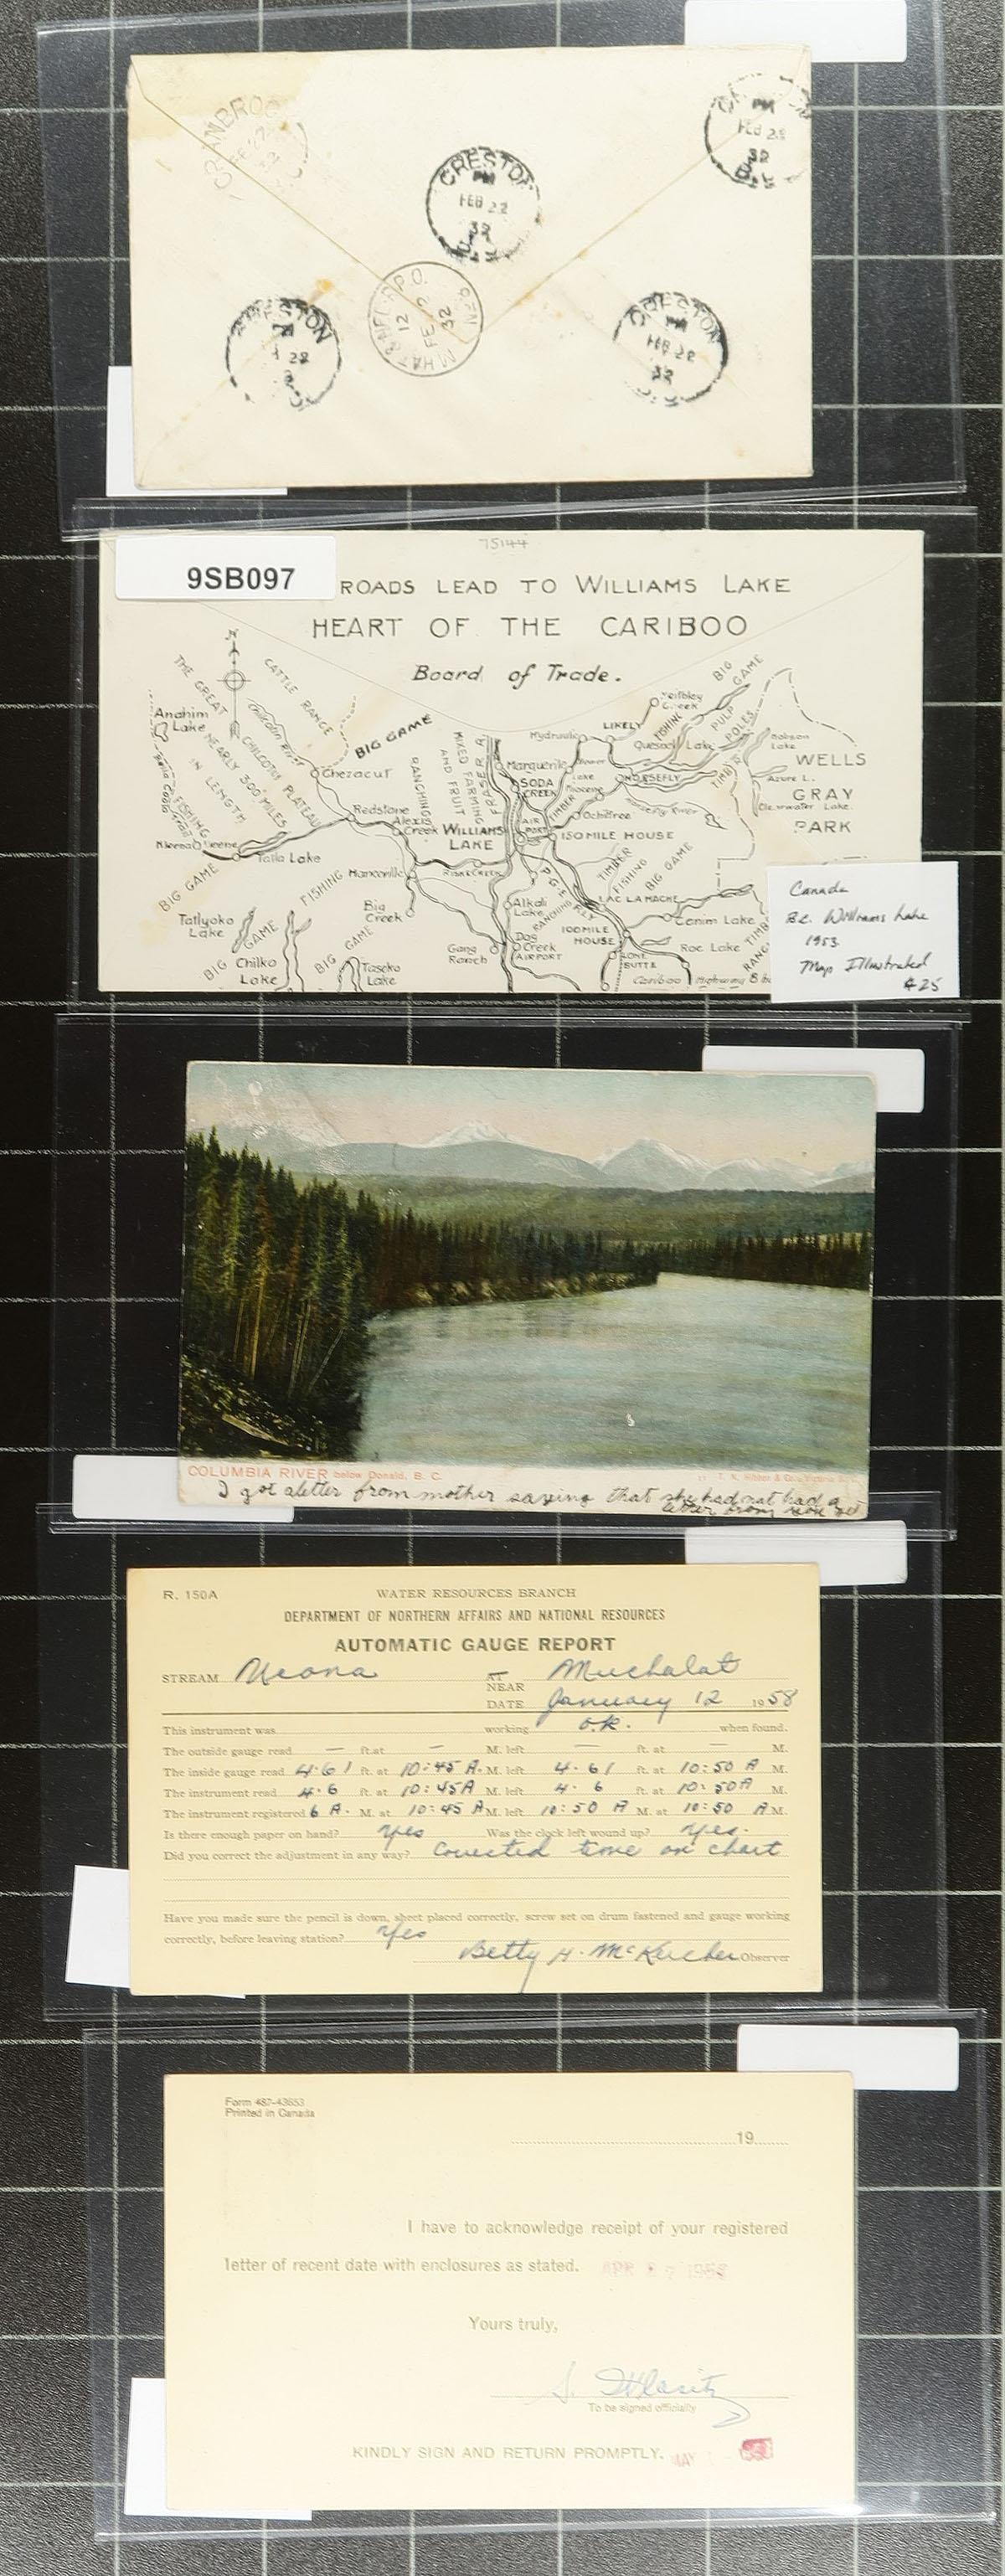 CRANBROOK
CRESTON
PM
FEB 22
32
B.C.
PM
FEB 22
32
CRESTON
22
CRESTON
PM
FEB 22
32
M. HAT & NEL. R.P.O.
12
FE
32
75144
9SB097
ROADS LEAD TO WILLIAMS LAKE
HEART OF THE CARIBOO
Board of Trade.
N
THE GREAT CHILCOTIN PLATEAU
NEARLY 300 MILES
IN LENGTH
CATTLE RANGE
Chilcotin River
BIG GAME
Anahim Lake
Bella Coola Trail
FISHING
Kleena Kleene
Tatla Lake
Chezacut
Redstone
Alexis Creek
RANCHING
MIXED FARMING AND FRUIT
FRASER R
WILLIAMS LAKE
Marguerite
SODA CREEK
Hydraulic
LIKELY
Keithley Creek
FISHING
Quesnel Lake
PULP
POLES
BIG GAME
TIMBER
Hobson Lake
WELLS
Azure L.
GRAY
Clearwater Lake.
PARK
HORSEFLY
Horsefly River
Ochiltree
AIR PORT
150 MILE HOUSE
TIMBER
FISHING
BIG GAME
BIG GAME
FISHING
Hanceville
RISKE CREEK
Big Creek
P.G.E. RLY
RANCHING
LAC LA HACHE
Alkali Lake
Canim Lake
Tatlayoko Lake
BIG GAME
Chilko Lake
BIG GAME
Taseko Lake
Gang Ranch
Dog Creek
AIRPORT
100 MILE HOUSE
Roe Lake
LONE BUTTE
Cariboo Highway
TIMB
RANG
Canada
BC. Williams Lake
1953
Map Illustrated
$25
COLUMBIA RIVER below Donald, B. C.
T. N. Hibben & Co., Victoria B.C.
I got a letter from mother saying that she had not had a
letter from
R. 150A
WATER RESOURCES BRANCH
DEPARTMENT OF NORTHERN AFFAIRS AND NATIONAL RESOURCES
AUTOMATIC GAUGE REPORT
STREAM Ucona AT NEAR Muchalat
DATE January 12 1958
This instrument was working O.K. when found.
The outside gauge read — ft. at — M. left — ft. at — M.
The inside gauge read 4.61 ft. at 10:45 A. M. left 4.61 ft. at 10:50 A M.
The instrument read 4.6 ft. at 10:45 A M. left 4.6 ft. at 10:50 A M.
The instrument registered 6 A. M. at 10:45 A M. left 10:50 A M. at 10:50 A M.
Is there enough paper on hand? Yes Was the clock left wound up? Yes.
Did you correct the adjustment in any way? Corrected time on chart
Have you made sure the pencil is down, sheet placed correctly, screw set on drum fastened and gauge working
correctly, before leaving station? Yes
Betty H. McKercher Observer
Form 487-43653
Printed in Canada
19
I have to acknowledge receipt of your registered
letter of recent date with enclosures as stated.
Yours truly,
To be signed officially
KINDLY SIGN AND RETURN PROMPTLY.
MAY